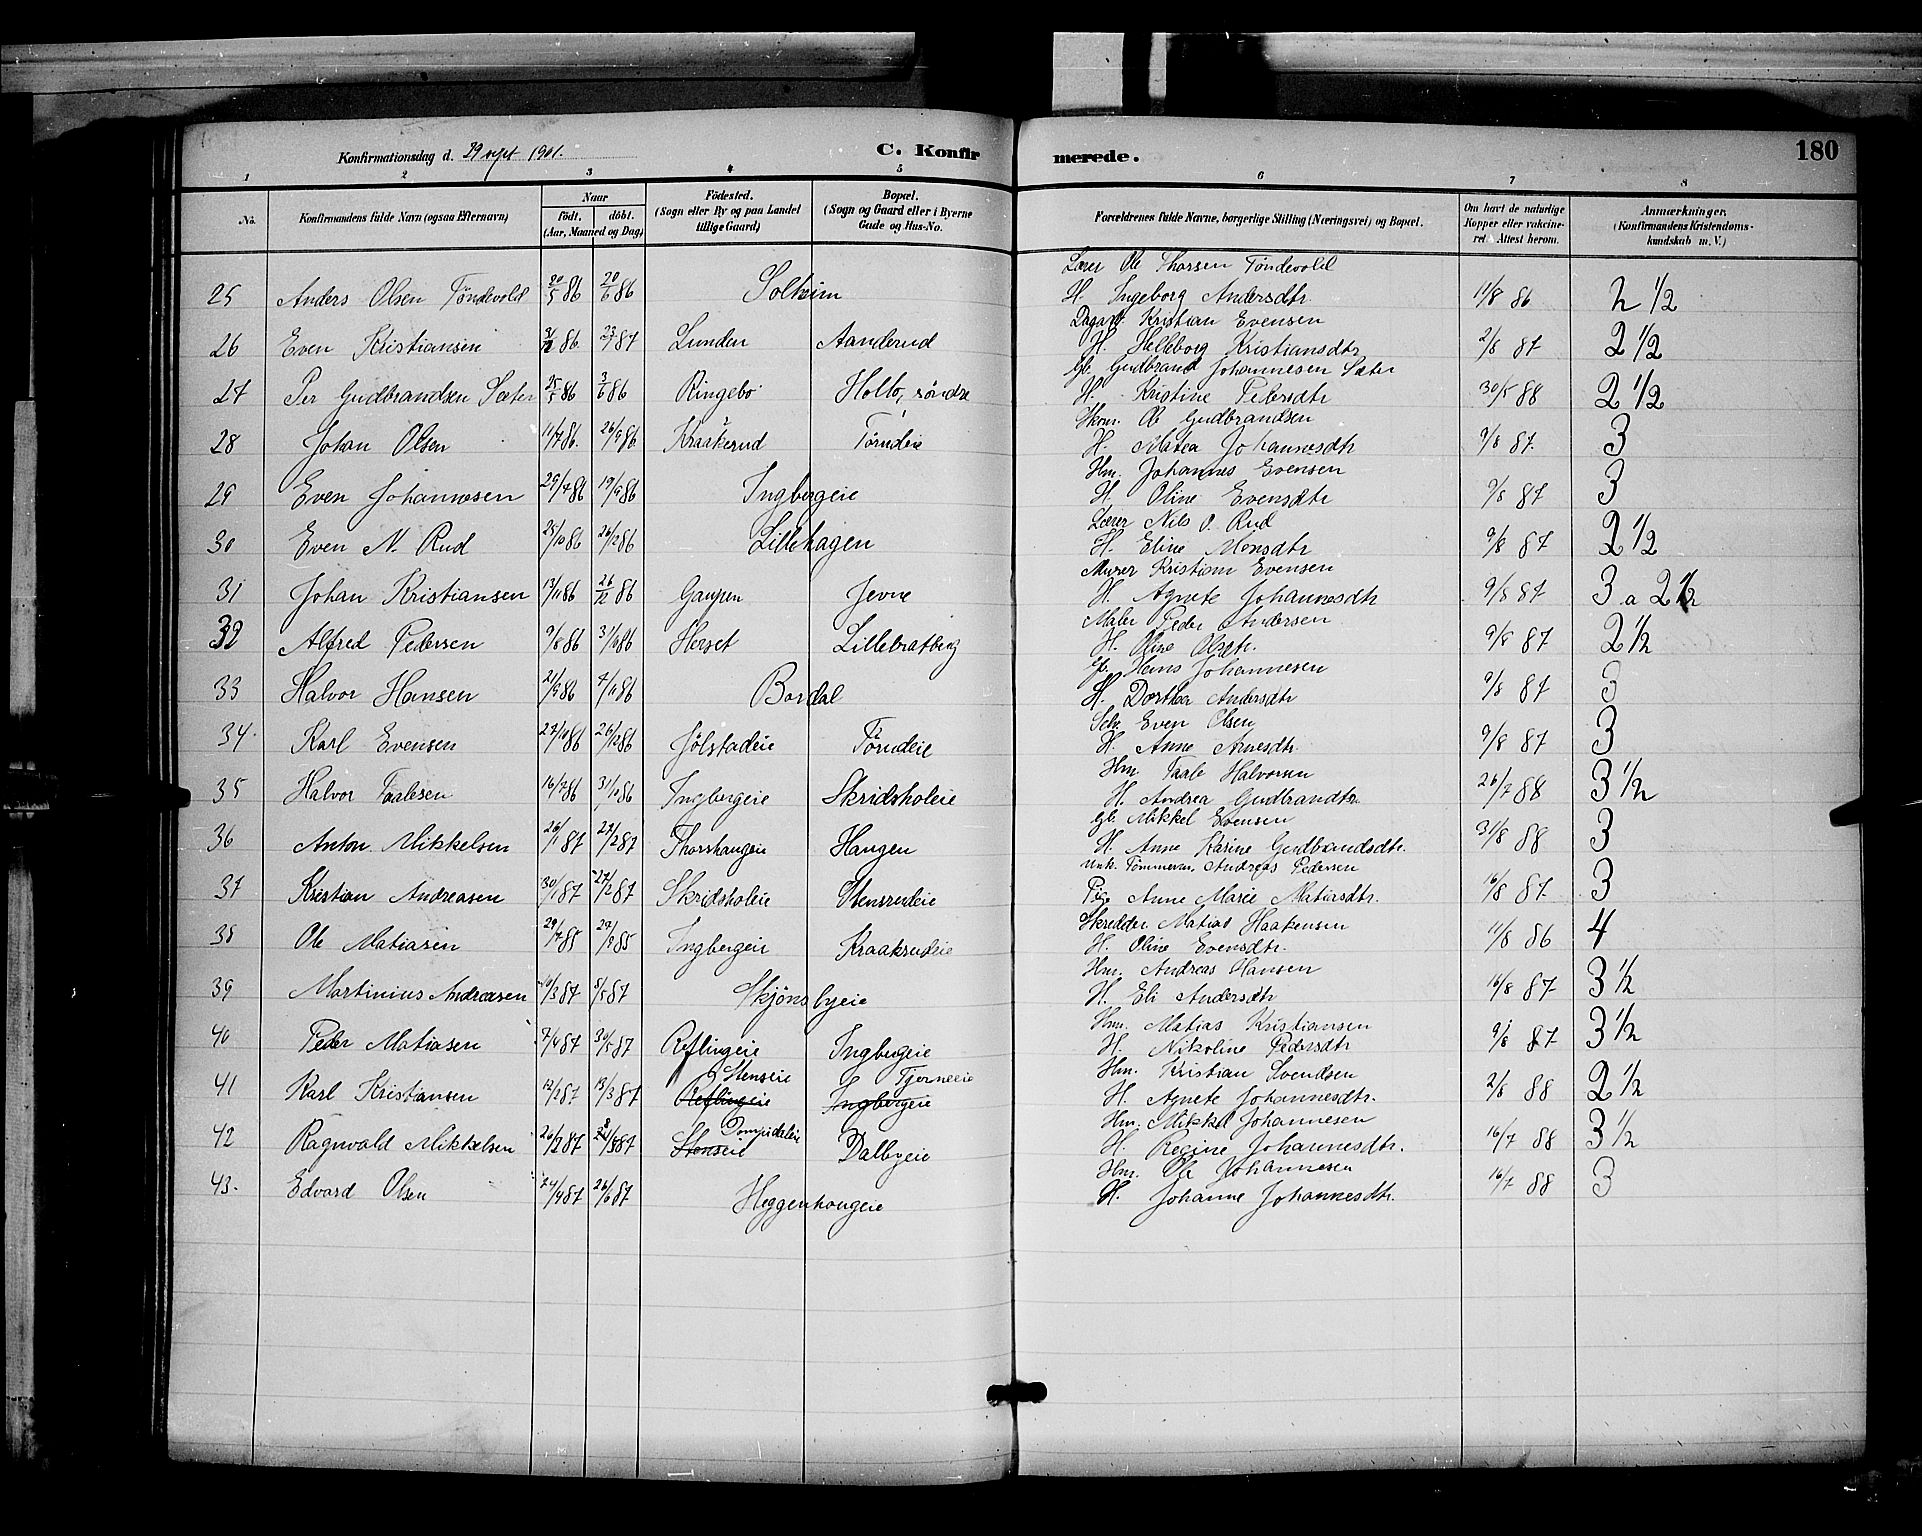 Konfirmationsdag d. 29 sept 1901. C. Konfirmerede. 180
1 2 3 4 5 6 7 8
No. Konfirmandens fulde Navn (ogsaa Efternavn) Naar født. døbt. (Aar, Maaned og Dag) Födested. (Sogn eller By og paa Landet tillige Gaard) Bopæl. (Sogn og Gaard eller i Byerne Gade og Hus-No. Forældrenes fulde Navne, borgerlige Stilling (Næringsvei) og Bopæl. Om havt de naturlige Kopper eller vakcineret. Attest herom. Anmærkninger. (Konfirmandens Kristendomskundskab m. V.)
Lærer Ole Thorsen Tøndevold
25 Anders Olsen Tøndevold 20/5 86 20/6 86 Solheim H. Ingeborg Andersdtr 11/8 86 2 1/2
Dagarb. Kristian Evensen
26 Even Kristiansen 86 23/1 87 Lunden Aanderud H. Helleborg Kristiansdtr 2/8 87 2 1/2
Gb. Gudbrand Johannesen Sæter
27 Per Gudbrandsen Sæter 86 3/6 86 Ringebo Holte, søndre H. Kristine Pedersdtr 30/5 88 2 1/2
Skom. Ole Gudbrandsen
28 Johan Olsen 11/7 86. 26/9 86 Kraakerud Tørudeie H. Matea Johannesdtr 9/8 87. 3
Hm. Johannes Evensen
29 Even Johannesen 29/7 86 19/9 86 Ingbergeie H. Oline Evensdtr 9/8 87 3
Lærer Nils O. Rud
30 Even N. Rud 25/10 86 26/12 86 Lillehagen H. Eline Monsdtr 9/8 87 2 1/2
Murer Kristian Evensen
31 Johan Kristiansen 13/11 86 26/12 86 Gaupen Jevne H. Agnete Johannesdtr 9/8 87 3 a 2 1/2
Maler Peder Andersen
32 Alfred Pedersen 9/8 86 31/10 86 Herset Lillebratberg H. Oline Olsdtr. 9/8 87 2 1/2
Gb. Hans Johannesen
33 Halvor Hansen 2/9 86 7/11 86 Bordal H. Dorthea Andersdtr 9/8 87 3
Selv. Even Olsen
34. Karl Evensen 27/10 86 26/12 86 Jølstadeie Tørudeie H. Anne Arnesdtr. 9/8 87 3
Hm. Taale Halvorsen
35 Halvor Taalesen 16/7 86 31/10 86 Ingbergeie Skridsholeie H. Andrea Gudbrandsdtr. 26/7 88 3 1/2
Gb. Mikkel Evensen
36 Anton Mikkelsen 26/1 87 27/2 87 Thorshaugeie Haugen H. Anne Karine Gudbrandsdtr. 31/8 88 3
Unk. Tømmerm. Andreas Pedersen
37 Kristian Andreasen 30/1 87 27/2 87 Skridsholeie Stensrudeie Pige Anne Marie Matiasdtr. 16/8 87. 3
Skredder Matias Haakensen
38 Ole Matiasen 29/7 85 85 Ingbergeie Kraakrudeie H. Oline Evensdtr. 11/8 86 4
Hm. Andreas Hansen
39 Martinius Andreasen 10/3 87 8/5 87 Skjønsbyeie H. Eli Andersdtr 16/8 87 3 1/2
Hm. Matias Kristiansen
40 Peder Matiasen 7/4 87 30/5 87 Reflingeie Ingbergeie H. Nikoline Pedersdtr 9/8 87 3 1/2
Stenseie Tjerneeie Hm. Kristian Svendsen
41 Karl Kristiansen 12/2 87 13/3 87 Reflingeie Ingbergeie H. Agnete Johannesdtr. 2/8 88 2 1/2
Dompidaleie Hm. Mikkel Johannesen
42 Ragnvald Mikkelsen 26/2 87 87 Stenseie Dalbyeie H. Regine Johannesdtr. 16/7 88 3 1/2
Hm. Ole Johannesen
43. Edvard Olsen 24/4 87 26/6 87 Heggenhougeie H. Johanne Johannesdtr. 16/7 88 3